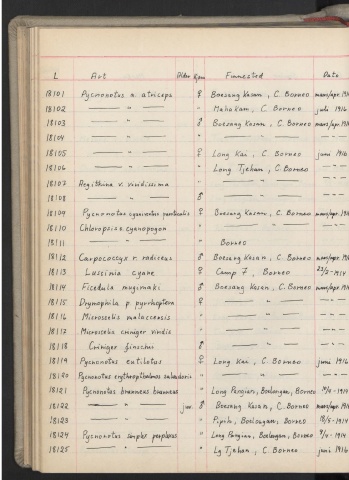 L Art Ålder Kön Finnested Date
18101 Pycnonotus a. atriceps ♀ Boesang Kasan, C. Borneo mars/apr. 1916
18102 — " — " Mahakam, C. Borneo juli 1916
18103 — " — ♂ Boesang Kasan, C. Borneo mars/apr.
18104 — " — " — " —
18105 — " — ♀ Long Kai, C. Borneo juni 1916
18106 — " — " Long Tjehan, C. Borneo — " —
18107 Aegithina v. viridissima " — " — — " —
18108 — " — ♂ — " — — " —
18109 Pycnonotus cyaniventris paroticalis ♀ Boesang Kasan, C. Borneo mars/apr.
18110 Chloropsis c. cyanopogon " — " —
18111 — " — " Borneo
18112 Carpococcyx r. radiceus ♂ Boesang Kasan, C. Borneo mars/apr.
18113 Luscinia cyane ♀ Camp 7, Borneo 1914
18114 Ficedula mugimaki ♂ Boesang Kasan, C. Borneo mars/apr. 1916
18115 Drymophila p. pyrrhoptera ♀ — " — — " —
18116 Microscelis malaccensis " — " — — " —
18117 Microscelis criniger viridis " — " — — " —
18118 Criniger finschi ♂ — " — — " —
18119 Pycnonotus eutilotus ♀ Long Kai, C. Borneo juni 1916
18120 Pycnonotus erythropthalmos salvadorii " — " — — " —
18121 Pycnonotus brunneus brunneus " Long Pangian, Boelongan, Borneo 1914
18122 — " — juv. ♂ Boesang Kasan, C. Borneo mars/apr. 1916
18123 — " — " Boelongan, Borneo 1914
18124 Pycnonotus simplex perplexus " Long Pangian, Boelongan, Borneo 1914
18125 — " — " Lg Tjehan, C. Borneo juni 1916